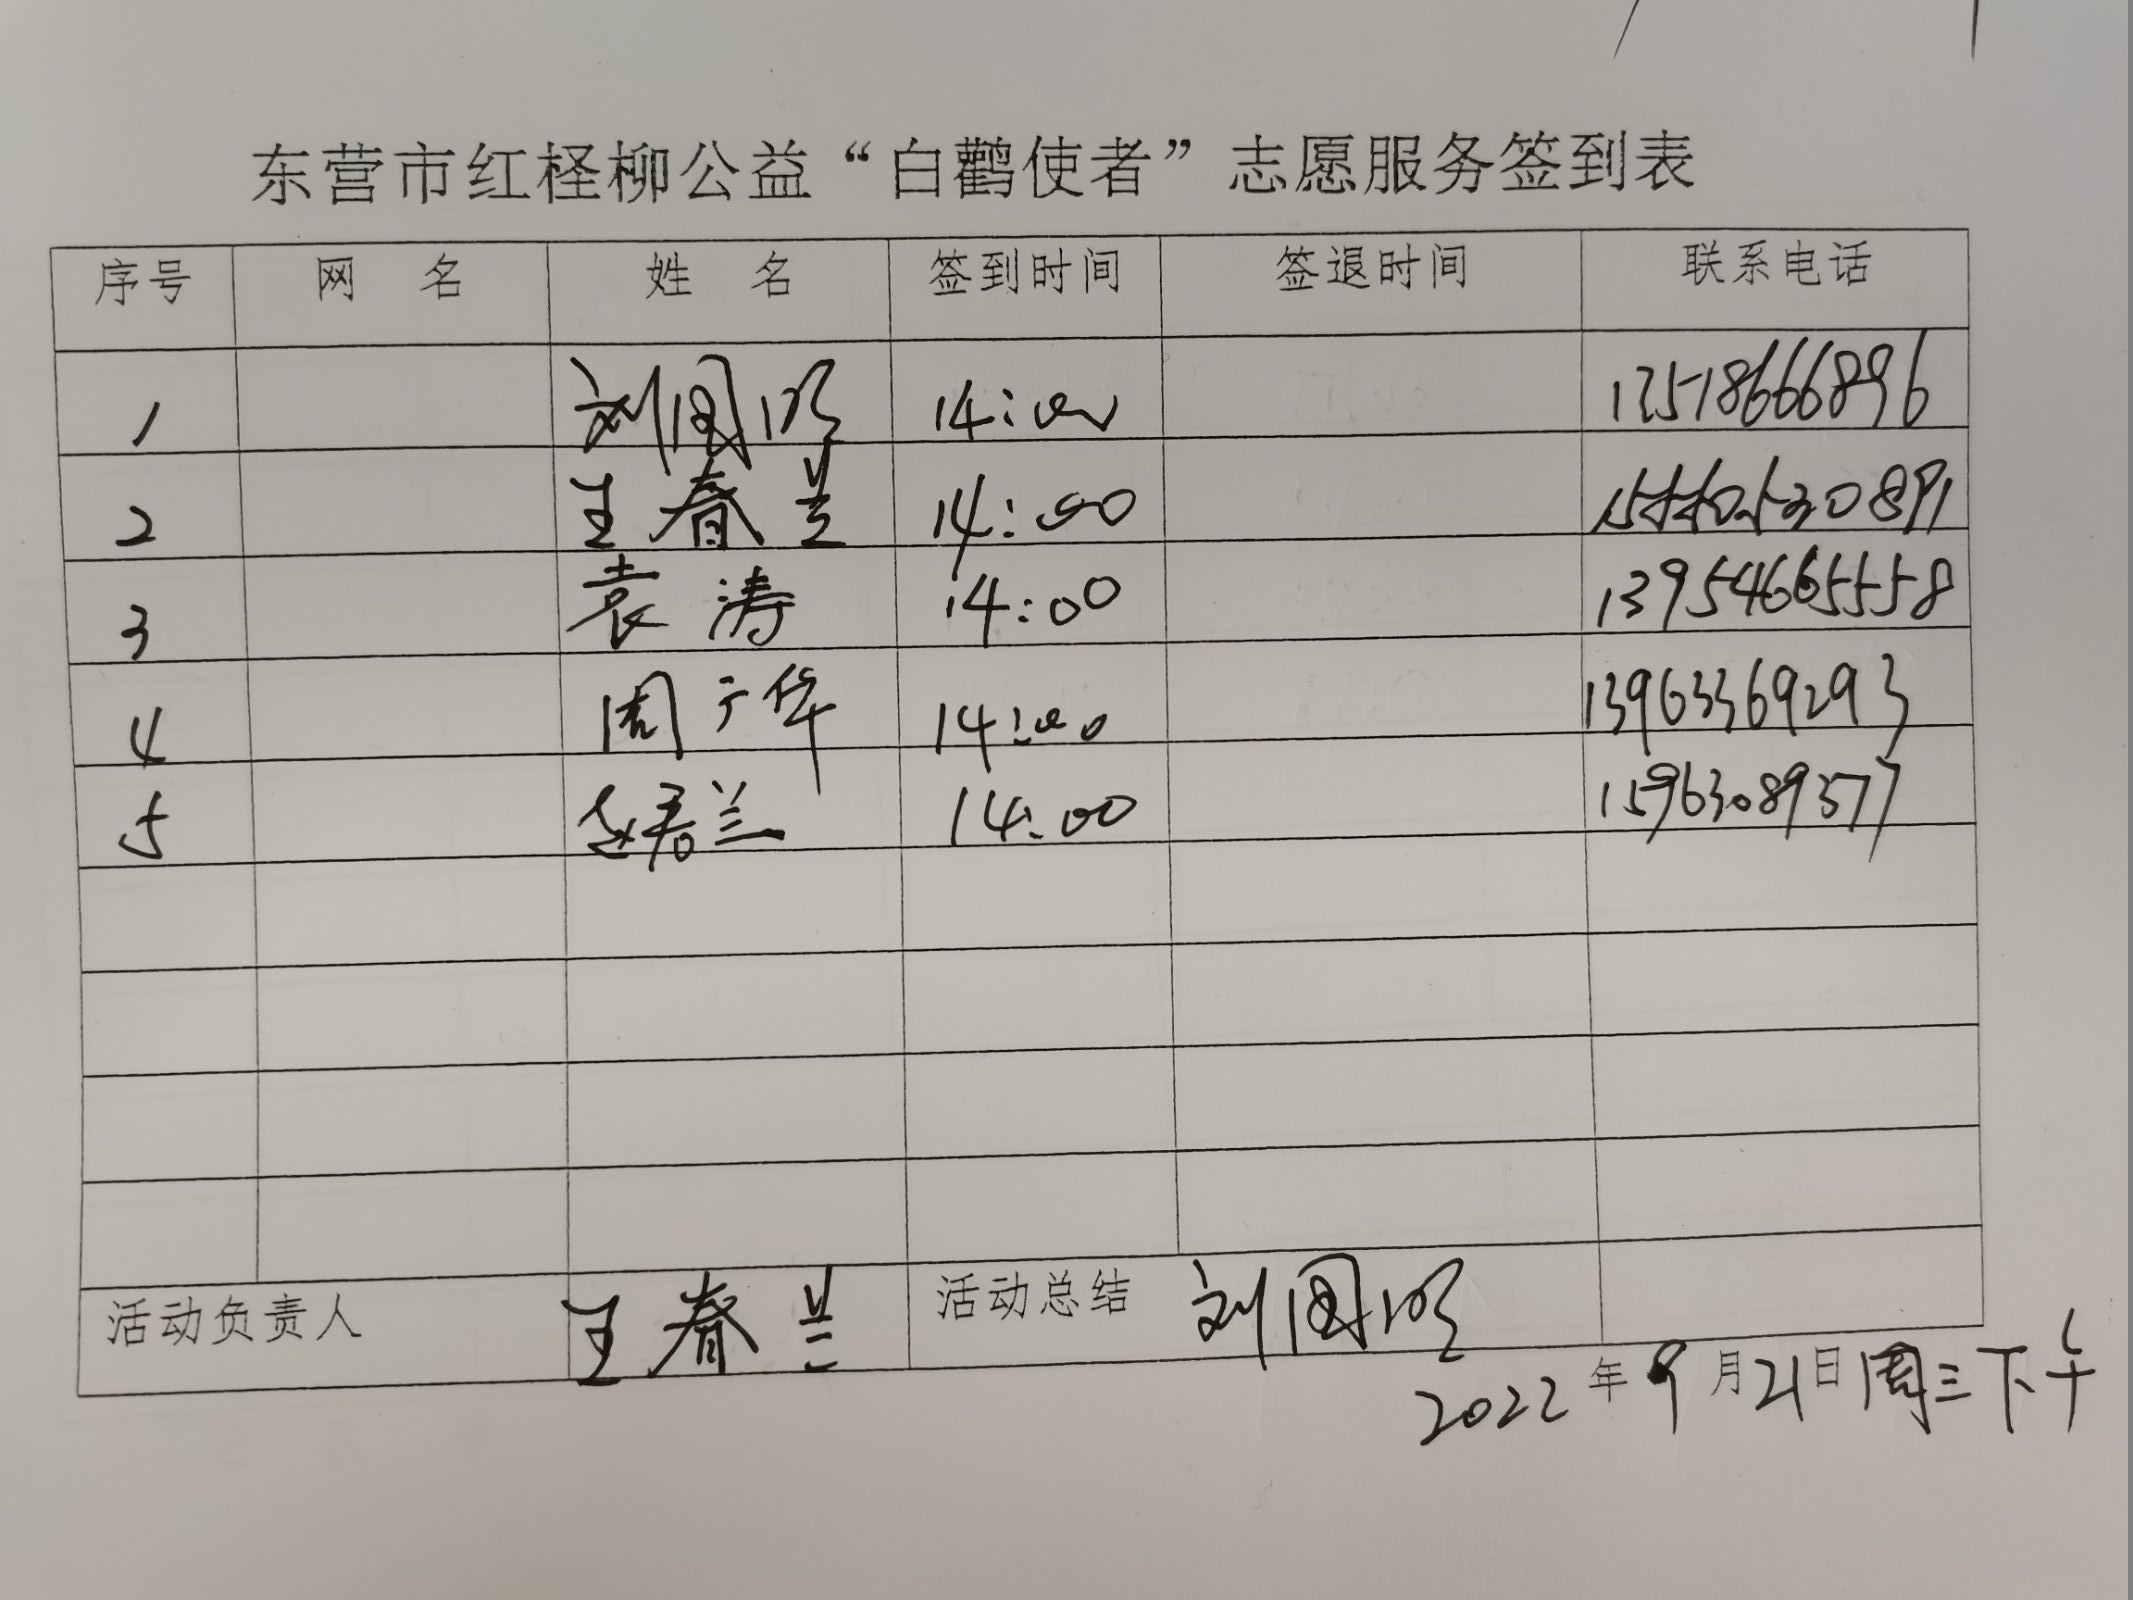 东营市红柽柳公益“白鹳使者”志愿服务签到表
序号 网 名 姓 名 签到时间 签退时间 联系电话
1 刘国明 14:00
2 王春兰 14:00
3 袁涛 14:00 13954665558
4 周广华 14:00 13963369293
5 赵君兰 14:00 15963089377
活动负责人 王春兰 活动总结 刘国明
2022年9月21日周三下午